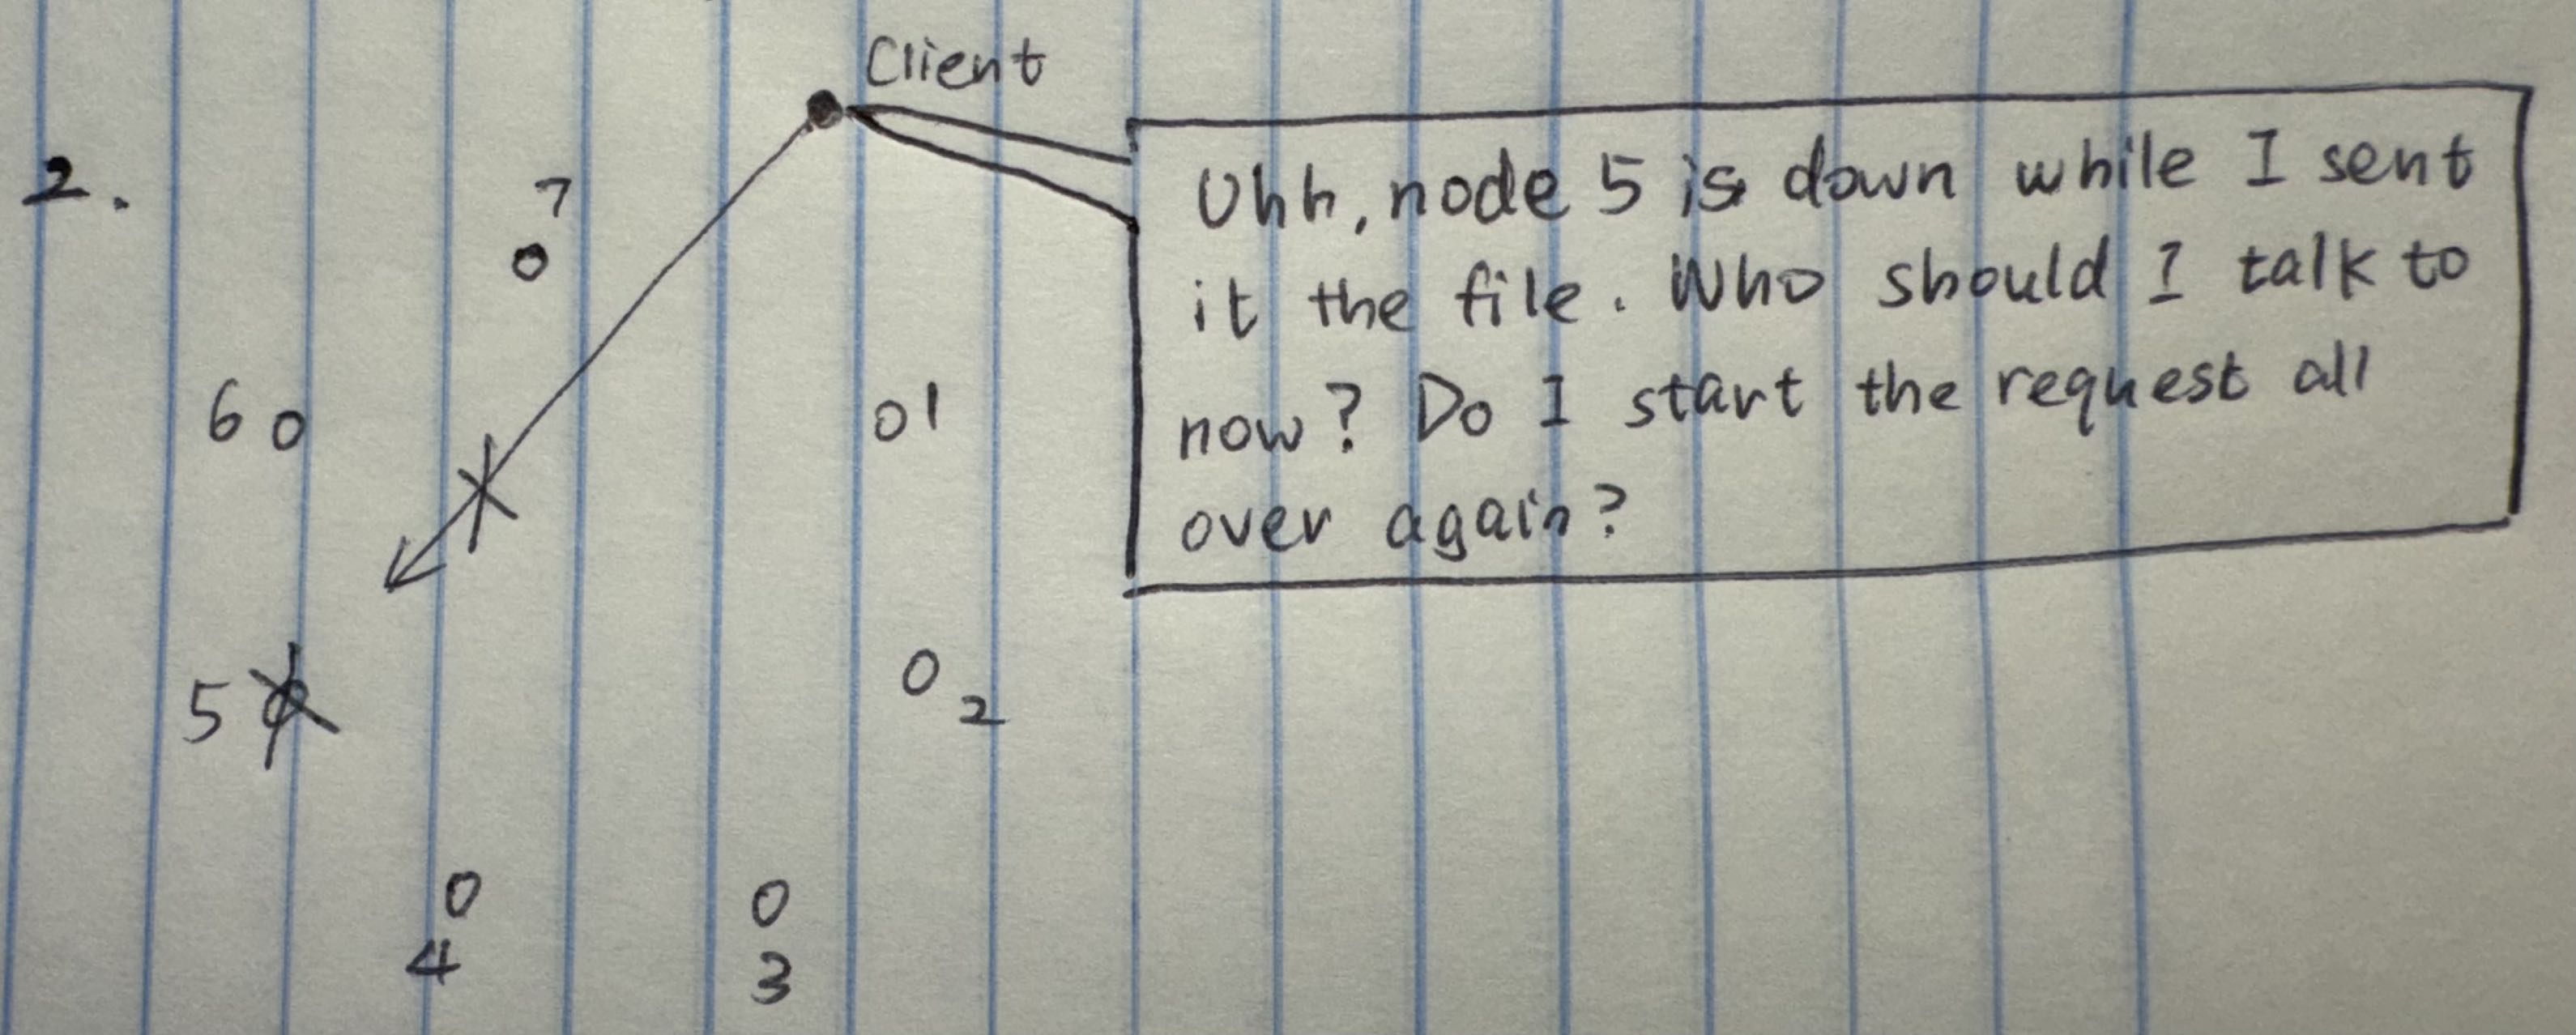 2.
Client
Uhh, node 5 is down while I sent
it the file. Who should I talk to
now? Do I start the request all
over again?
7
6
1
5
2
4
3